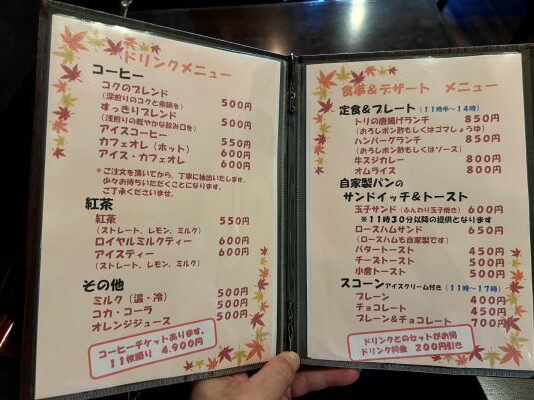 ドリンクメニュー
コーヒー
コクのブレンド
(深煎りのコクと余韻を) 500円
すっきりブレンド
(浅煎りの軽やかな飲み口を) 500円
アイスコーヒー 550円
カフェオレ(ホット) 600円
アイス・カフェオレ 600円
*ご注文を頂いてから、丁寧に抽出いたします。
少々お待ちいただくことになります。
ご了承くださいませ。
紅茶
紅茶 550円
(ストレート、レモン、ミルク)
ロイヤルミルクティー 600円
アイスティー 600円
(ストレート、レモン、ミルク)
その他
ミルク(温・冷) 500円
コカ・コーラ 500円
オレンジジュース 500円
コーヒーチケットあります。
11枚綴り 4,900円
食事&デザート メニュー
定食&プレート(11時半~14時)
トリの唐揚げランチ 850円
(おろしポン酢もしくはゴマしょうゆ)
ハンバーグランチ 850円
(おろしポン酢もしくはソース)
牛スジカレー 800円
オムライス 800円
自家製パンの
サンドイッチ&トースト
玉子サンド(ふんわり玉子焼き) 600円
※11時30分以降の提供となります
ロースハムサンド 650円
(ロースハムも自家製です)
バタートースト 450円
チーズトースト 500円
小倉トースト 500円
スコーンアイスクリーム付き(11時~17時)
プレーン 400円
チョコレート 450円
プレーン&チョコレート 700円
ドリンクとのセットがお得
ドリンク料金 200円引き